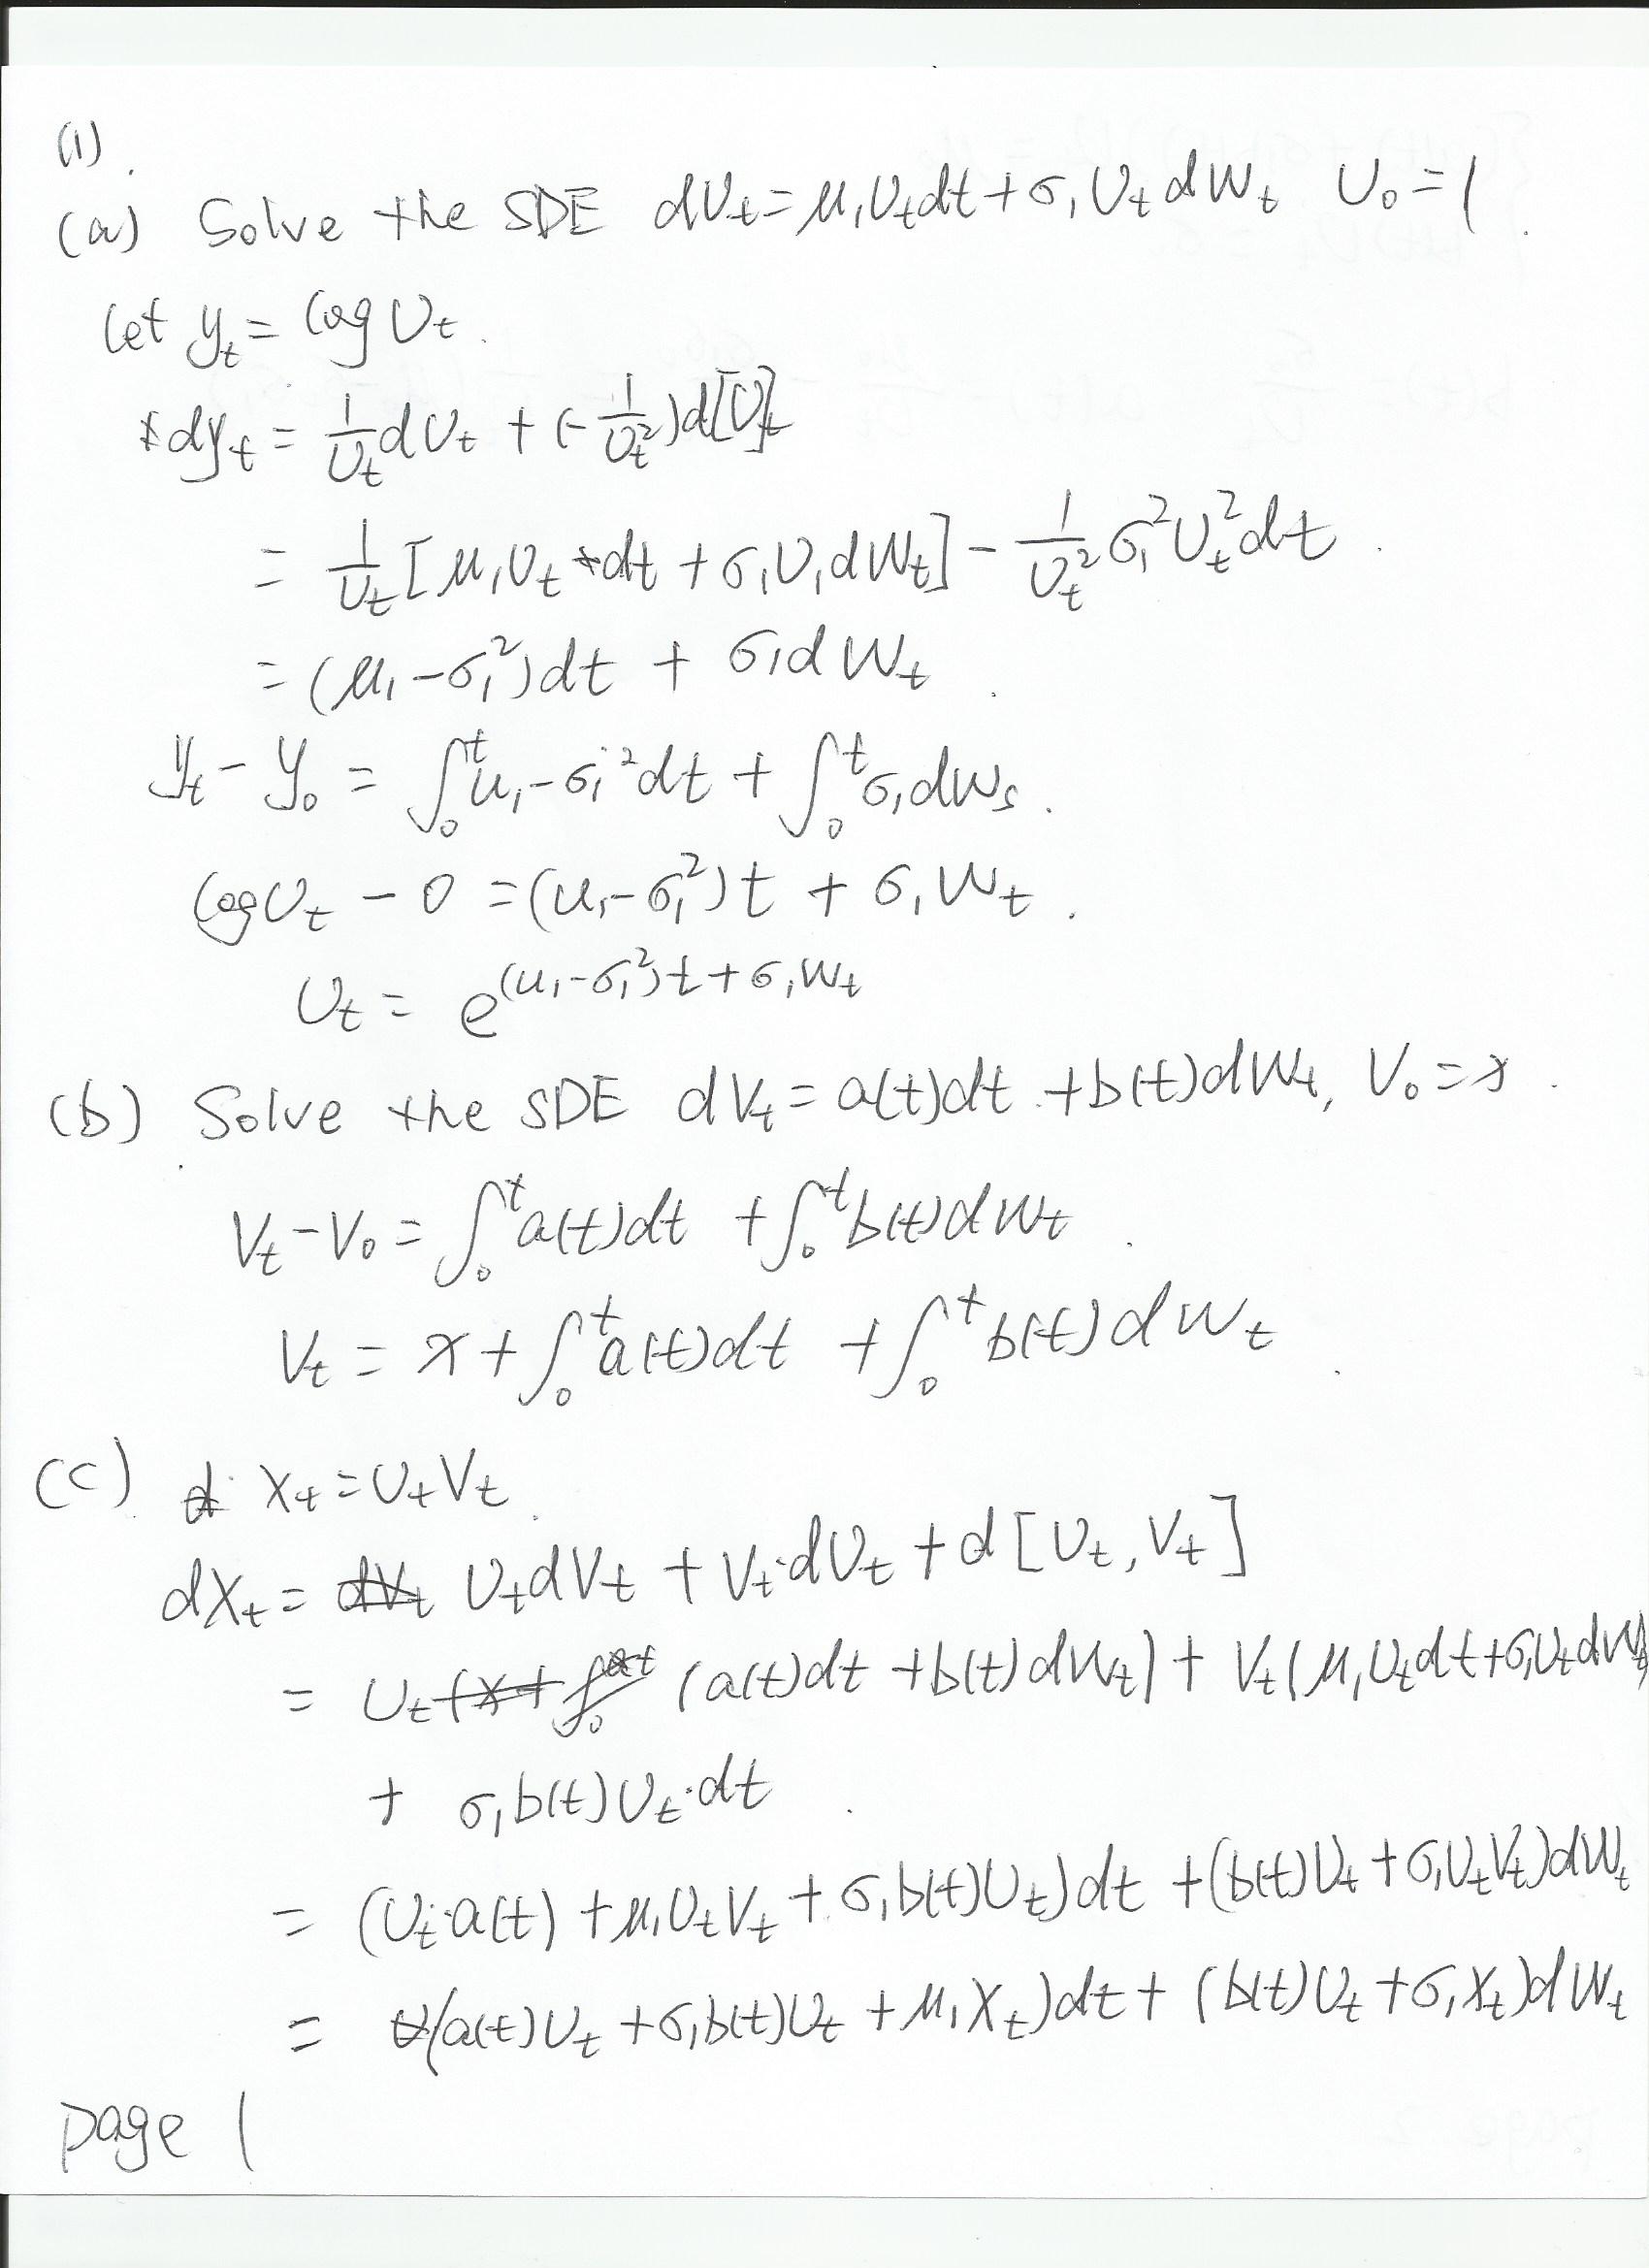 (1).
(a) Solve the SDE dU_t = μ_1U_tdt + σ_1U_t dW_t U_0 = 1.
Let y_t = log U_t.
dy_t = 1/U_t dU_t + (-1/U_t^2)d[U]_t
= 1/U_t [μ_1U_t dt + σ_1U_1dW_t] - 1/U_t^2 σ_1^2U_t^2dt.
= (μ_1-σ_1^2)dt + σ_1dW_t.
y_t - y_0 = ∫_0^t μ_1-σ_1^2dt + ∫_0^t σ_1dW_s.
log U_t - 0 = (μ_1-σ_1^2)t + σ_1W_t.
U_t = e^{(μ_1-σ_1^2)t+σ_1W_t}
(b) Solve the SDE dV_t = a(t)dt + b(t)dW_t, V_0 = x.
V_t - V_0 = ∫_0^t a(t)dt + ∫_0^t b(t)dW_t.
V_t = x + ∫_0^t a(t)dt + ∫_0^t b(t)dW_t.
(c) X_t = U_tV_t.
dX_t = U_tdV_t + V_t·dU_t + d[U_t, V_t]
= U_t (a(t)dt + b(t)dW_t) + V_t(μ_1U_tdt+σ_1U_tdW_t)
+ σ_1b(t)U_t·dt.
= (U_t·a(t) + μ_1U_tV_t + σ_1b(t)U_t)dt + (b(t)U_t + σ_1U_tV_t)dW_t
= (a(t)U_t + σ_1b(t)U_t + μ_1X_t)dt + (b(t)U_t + σ_1X_t)dW_t
page 1